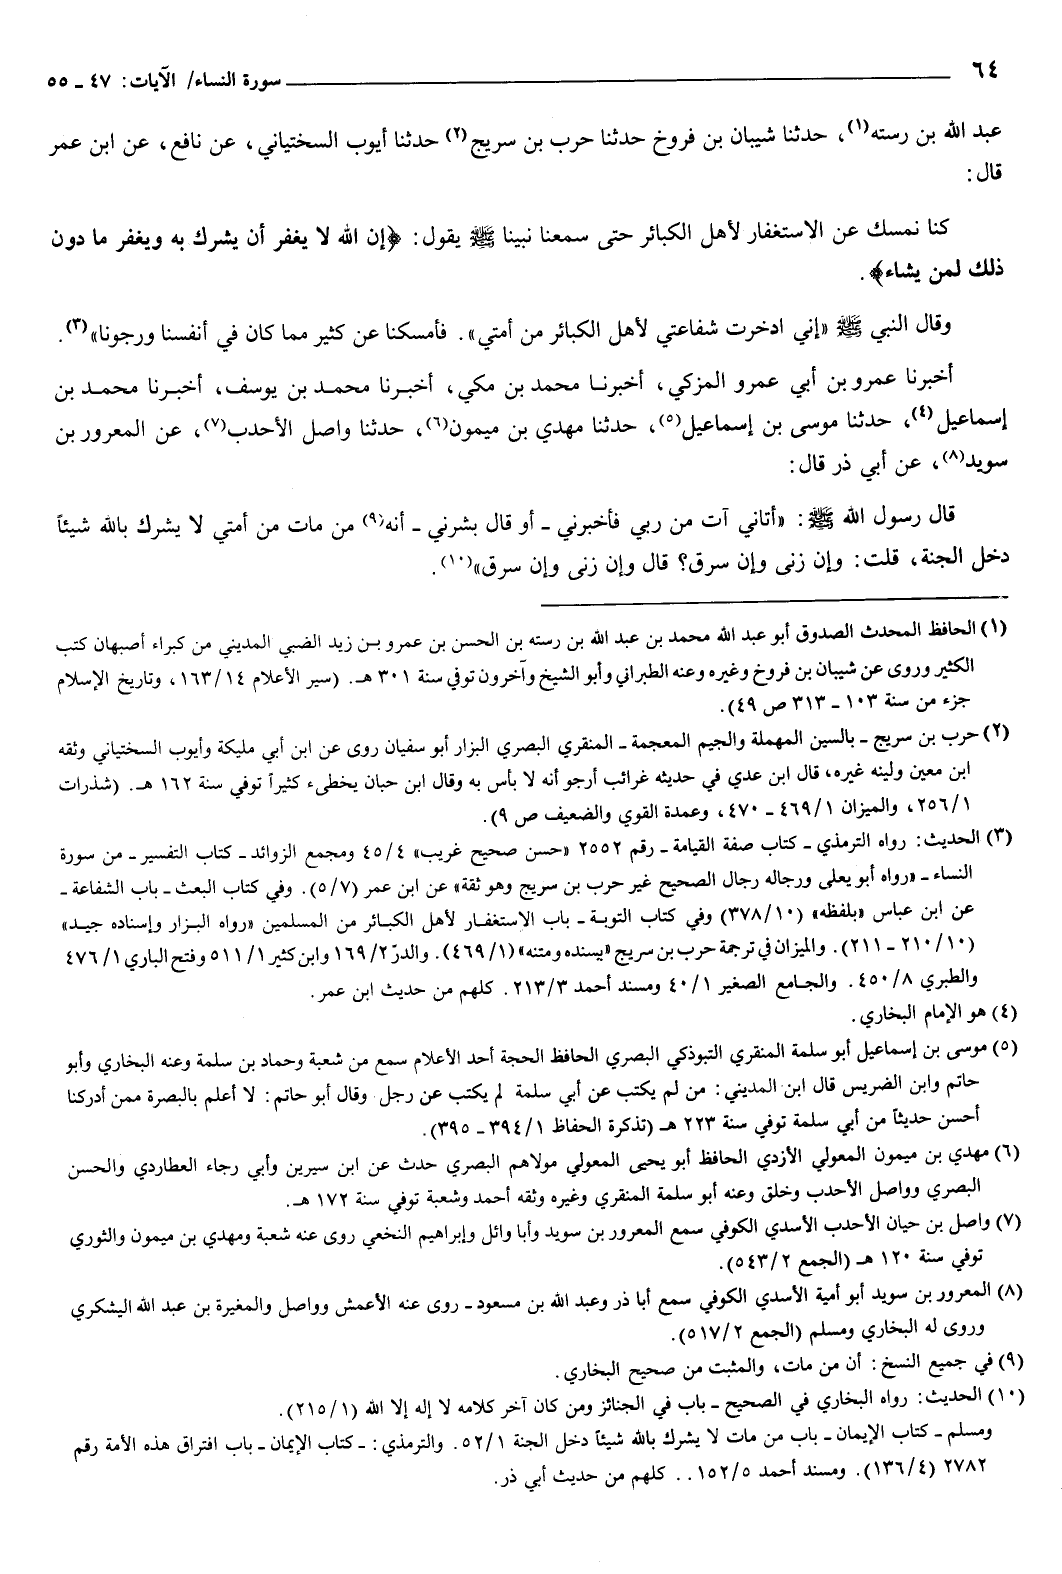 ٦٤ سورة النساء/ الآيات: ٤٧ ـ ٥٥
عبد الله بن رسته(١)، حدثنا شيبان بن فروخ حدثنا حرب بن سريج(٢) حدثنا أيوب السختياني، عن نافع، عن ابن عمر
قال:
كنا نمسك عن الاستغفار لأهل الكبائر حتى سمعنا نبينا ﷺ يقول: ﴿إن الله لا يغفر أن يشرك به ويغفر ما دون
ذلك لمن يشاء﴾.
وقال النبي ﷺ «إني ادخرت شفاعتي لأهل الكبائر من أمتي». فأمسكنا عن كثير مما كان في أنفسنا ورجونا»(٣).
أخبرنا عمرو بن أبي عمرو المزكي، أخبرنا محمد بن مكي، أخبرنا محمد بن يوسف، أخبرنا محمد بن
إسماعيل(٤)، حدثنا موسى بن إسماعيل(٥)، حدثنا مهدي بن ميمون(٦)، حدثنا واصل الأحدب(٧)، عن المعرور بن
سويد(٨)، عن أبي ذر قال:
قال رسول الله ﷺ: «أتاني آت من ربي فأخبرني ـ أو قال بشرني ـ أنه(٩) من مات من أمتي لا يشرك بالله شيئاً
دخل الجنة، قلت: وإن زنى وإن سرق؟ قال وإن زنى وإن سرق»(١٠).
(١) الحافظ المحدث الصدوق أبو عبد الله محمد بن عبد الله بن رسته بن الحسن بن عمرو بن زيد الضبي المديني من كبراء أصبهان كتب
الكثير وروى عن شيبان بن فروخ وغيره وعنه الطبراني وأبو الشيخ وآخرون توفي سنة ٣٠١ هـ. (سير الأعلام ١٦٣/١٤، وتاريخ الإسلام
جزء من سنة ١٠٣ ـ ٣١٣ ص ٤٩).
(٢) حرب بن سريج ـ بالسين المهملة والجيم المعجمة ـ المنقري البصري البزار أبو سفيان روى عن ابن أبي مليكة وأيوب السختياني وثقه
ابن معين ولينه غيره، قال ابن عدي في حديثه غرائب أرجو أنه لا بأس به وقال ابن حبان يخطىء كثيراً توفي سنة ١٦٢ هـ. (شذرات
٢٥٦/١، والميزان ٤٦٩/١ ـ ٤٧٠، وعمدة القوي والضعيف ص ٩).
(٣) الحديث: رواه الترمذي ـ كتاب صفة القيامة ـ رقم ٢٥٥٢ «حسن صحيح غريب» ٤٥/٤ ومجمع الزوائد ـ كتاب التفسير ـ من سورة
النساء ـ «رواه أبو يعلى ورجاله رجال الصحيح غير حرب بن سريج وهو ثقة» عن ابن عمر (٥/٧). وفي كتاب البعث ـ باب الشفاعة ـ
عن ابن عباس «بلفظه» (٣٧٨/١٠) وفي كتاب التوبة ـ باب الاستغفار لأهل الكبائر من المسلمين «رواه البزار وإسناده جيد»
(٢١٠/١٠ ـ ٢١١). والميزان في ترجمة حرب بن سريج «بسنده ومتنه» (٤٦٩/١). والدرّ ١٦٩/٢ وابن كثير ٥١١/١ وفتح الباري ٤٧٦/١
والطبري ٤٥٠/٨. والجامع الصغير ٤٠/١ ومسند أحمد ٢١٣/٣. كلهم من حديث ابن عمر.
(٤) هو الإمام البخاري.
(٥) موسى بن إسماعيل أبو سلمة المنقري التبوذكي البصري الحافظ الحجة أحد الأعلام سمع من شعبة وحماد بن سلمة وعنه البخاري وأبو
حاتم وابن الضريس قال ابن المديني: من لم يكتب عن أبي سلمة لم يكتب عن رجل وقال أبو حاتم: لا أعلم بالبصرة ممن أدركنا
أحسن حديثاً من أبي سلمة توفي سنة ٢٢٣ هـ (تذكرة الحفاظ ٣٩٤/١ ـ ٣٩٥).
(٦) مهدي بن ميمون المعولي الأزدي الحافظ أبو يحيى المعولي مولاهم البصري حدث عن ابن سيرين وأبي رجاء العطاردي والحسن
البصري وواصل الأحدب وخلق وعنه أبو سلمة المنقري وغيره وثقه أحمد وشعبة توفي سنة ١٧٢ هـ.
(٧) واصل بن حيان الأحدب الأسدي الكوفي سمع المعرور بن سويد وأبا وائل وإبراهيم النخعي روى عنه شعبة ومهدي بن ميمون والثوري
توفي سنة ١٢٠ هـ (الجمع ٥٤٣/٢).
(٨) المعرور بن سويد أبو أمية الأسدي الكوفي سمع أبا ذر وعبد الله بن مسعود ـ روى عنه الأعمش وواصل والمغيرة بن عبد الله اليشكري
وروى له البخاري ومسلم (الجمع ٥١٧/٢).
(٩) في جميع النسخ: أن من مات، والمثبت من صحيح البخاري.
(١٠) الحديث: رواه البخاري في الصحيح ـ باب في الجنائز ومن كان آخر كلامه لا إله إلا الله (٢١٥/١).
ومسلم ـ كتاب الإيمان ـ باب من مات لا يشرك بالله شيئاً دخل الجنة ٥٢/١. والترمذي: ـ كتاب الإيمان ـ باب افتراق هذه الأمة رقم
٢٧٨٢ (١٣٦/٤). ومسند أحمد ١٥٢/٥.. كلهم من حديث أبي ذر.